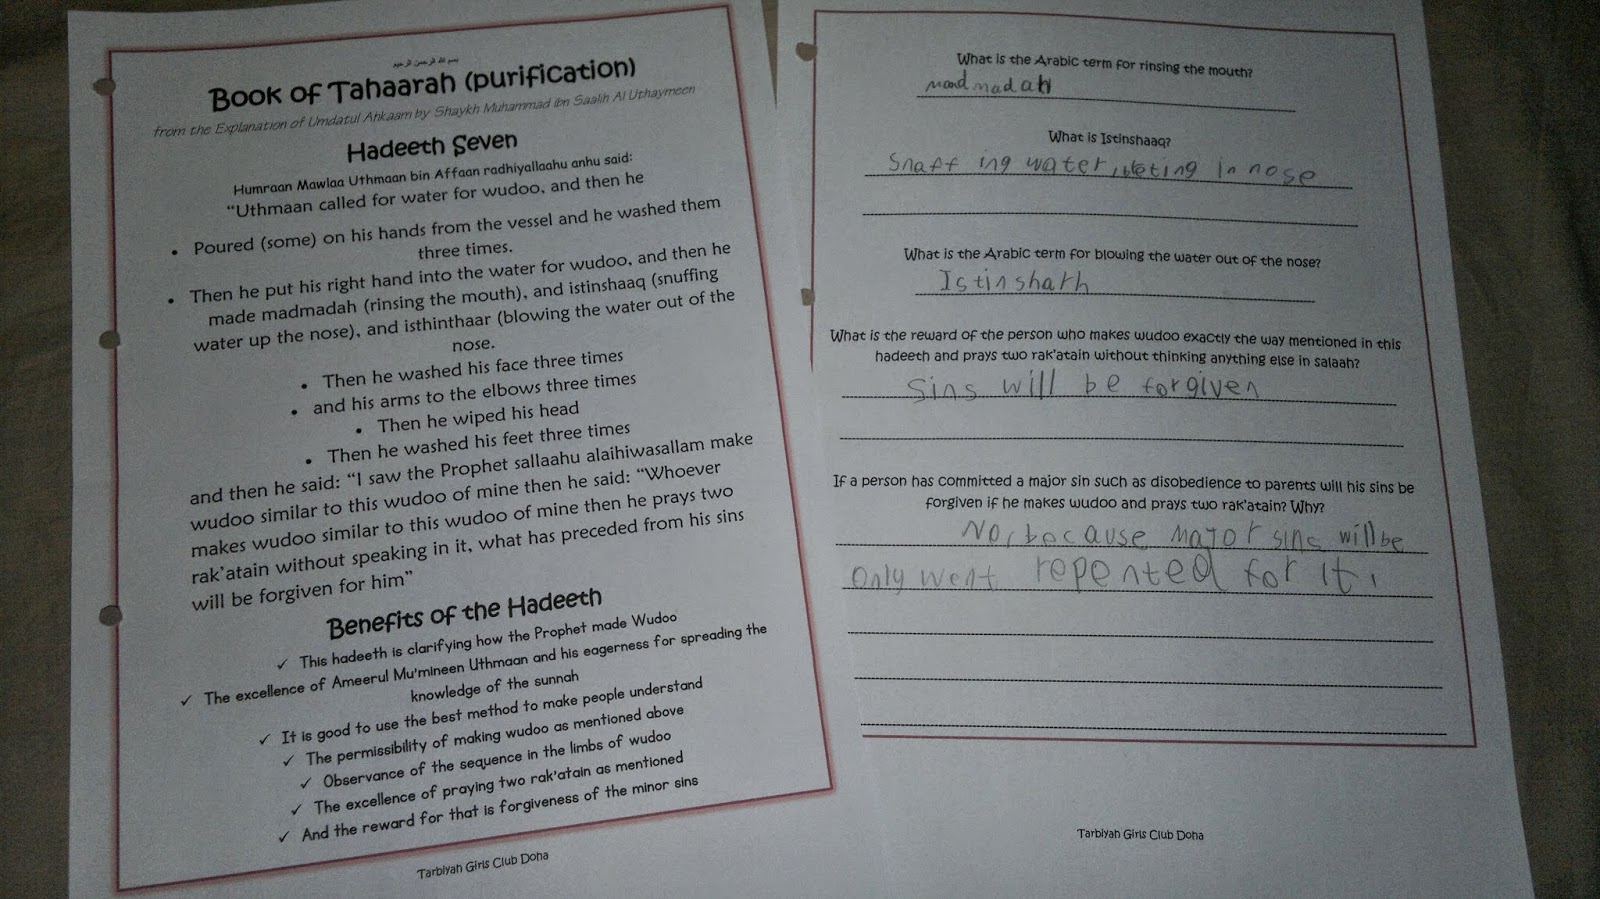 بسم الله الرحمن الرحيم
Book of Tahaarah (purification)
from the Explanation of Umdatul Ahkaam by Shaykh Muhammad ibn Saalih Al Uthaymeen
Hadeeth Seven
Humraan Mawlaa Uthmaan bin Affaan radhiyallaahu anhu said:
“Uthmaan called for water for wudoo, and then he
• Poured (some) on his hands from the vessel and he washed them
three times.
• Then he put his right hand into the water for wudoo, and then he
made madmadah (rinsing the mouth), and istinshaaq (snuffing
water up the nose), and isthinthaar (blowing the water out of the
nose.
• Then he washed his face three times
• and his arms to the elbows three times
• Then he wiped his head
• Then he washed his feet three times
and then he said: “I saw the Prophet sallaahu alaihiwasallam make
wudoo similar to this wudoo of mine then he said: “Whoever
makes wudoo similar to this wudoo of mine then he prays two
rak’atain without speaking in it, what has preceded from his sins
will be forgiven for him”
Benefits of the Hadeeth
✓ This hadeeth is clarifying how the Prophet made Wudoo
✓ The excellence of Ameerul Mu’mineen Uthmaan and his eagerness for spreading the
knowledge of the sunnah
✓ It is good to use the best method to make people understand
✓ The permissibility of making wudoo as mentioned above
✓ Observance of the sequence in the limbs of wudoo
✓ The excellence of praying two rak’atain as mentioned
✓ And the reward for that is forgiveness of the minor sins
Tarbiyah Girls Club Doha
What is the Arabic term for rinsing the mouth?
madmadah
What is Istinshaaq?
Snaff ing water, in nose
What is the Arabic term for blowing the water out of the nose?
Istinsharh
What is the reward of the person who makes wudoo exactly the way mentioned in this
hadeeth and prays two rak’atain without thinking anything else in salaah?
Sins will be forgiven
If a person has committed a major sin such as disobedience to parents will his sins be
forgiven if he makes wudoo and prays two rak’atain? Why?
No, because major sins will be
Only went repented for it,
Tarbiyah Girls Club Doha